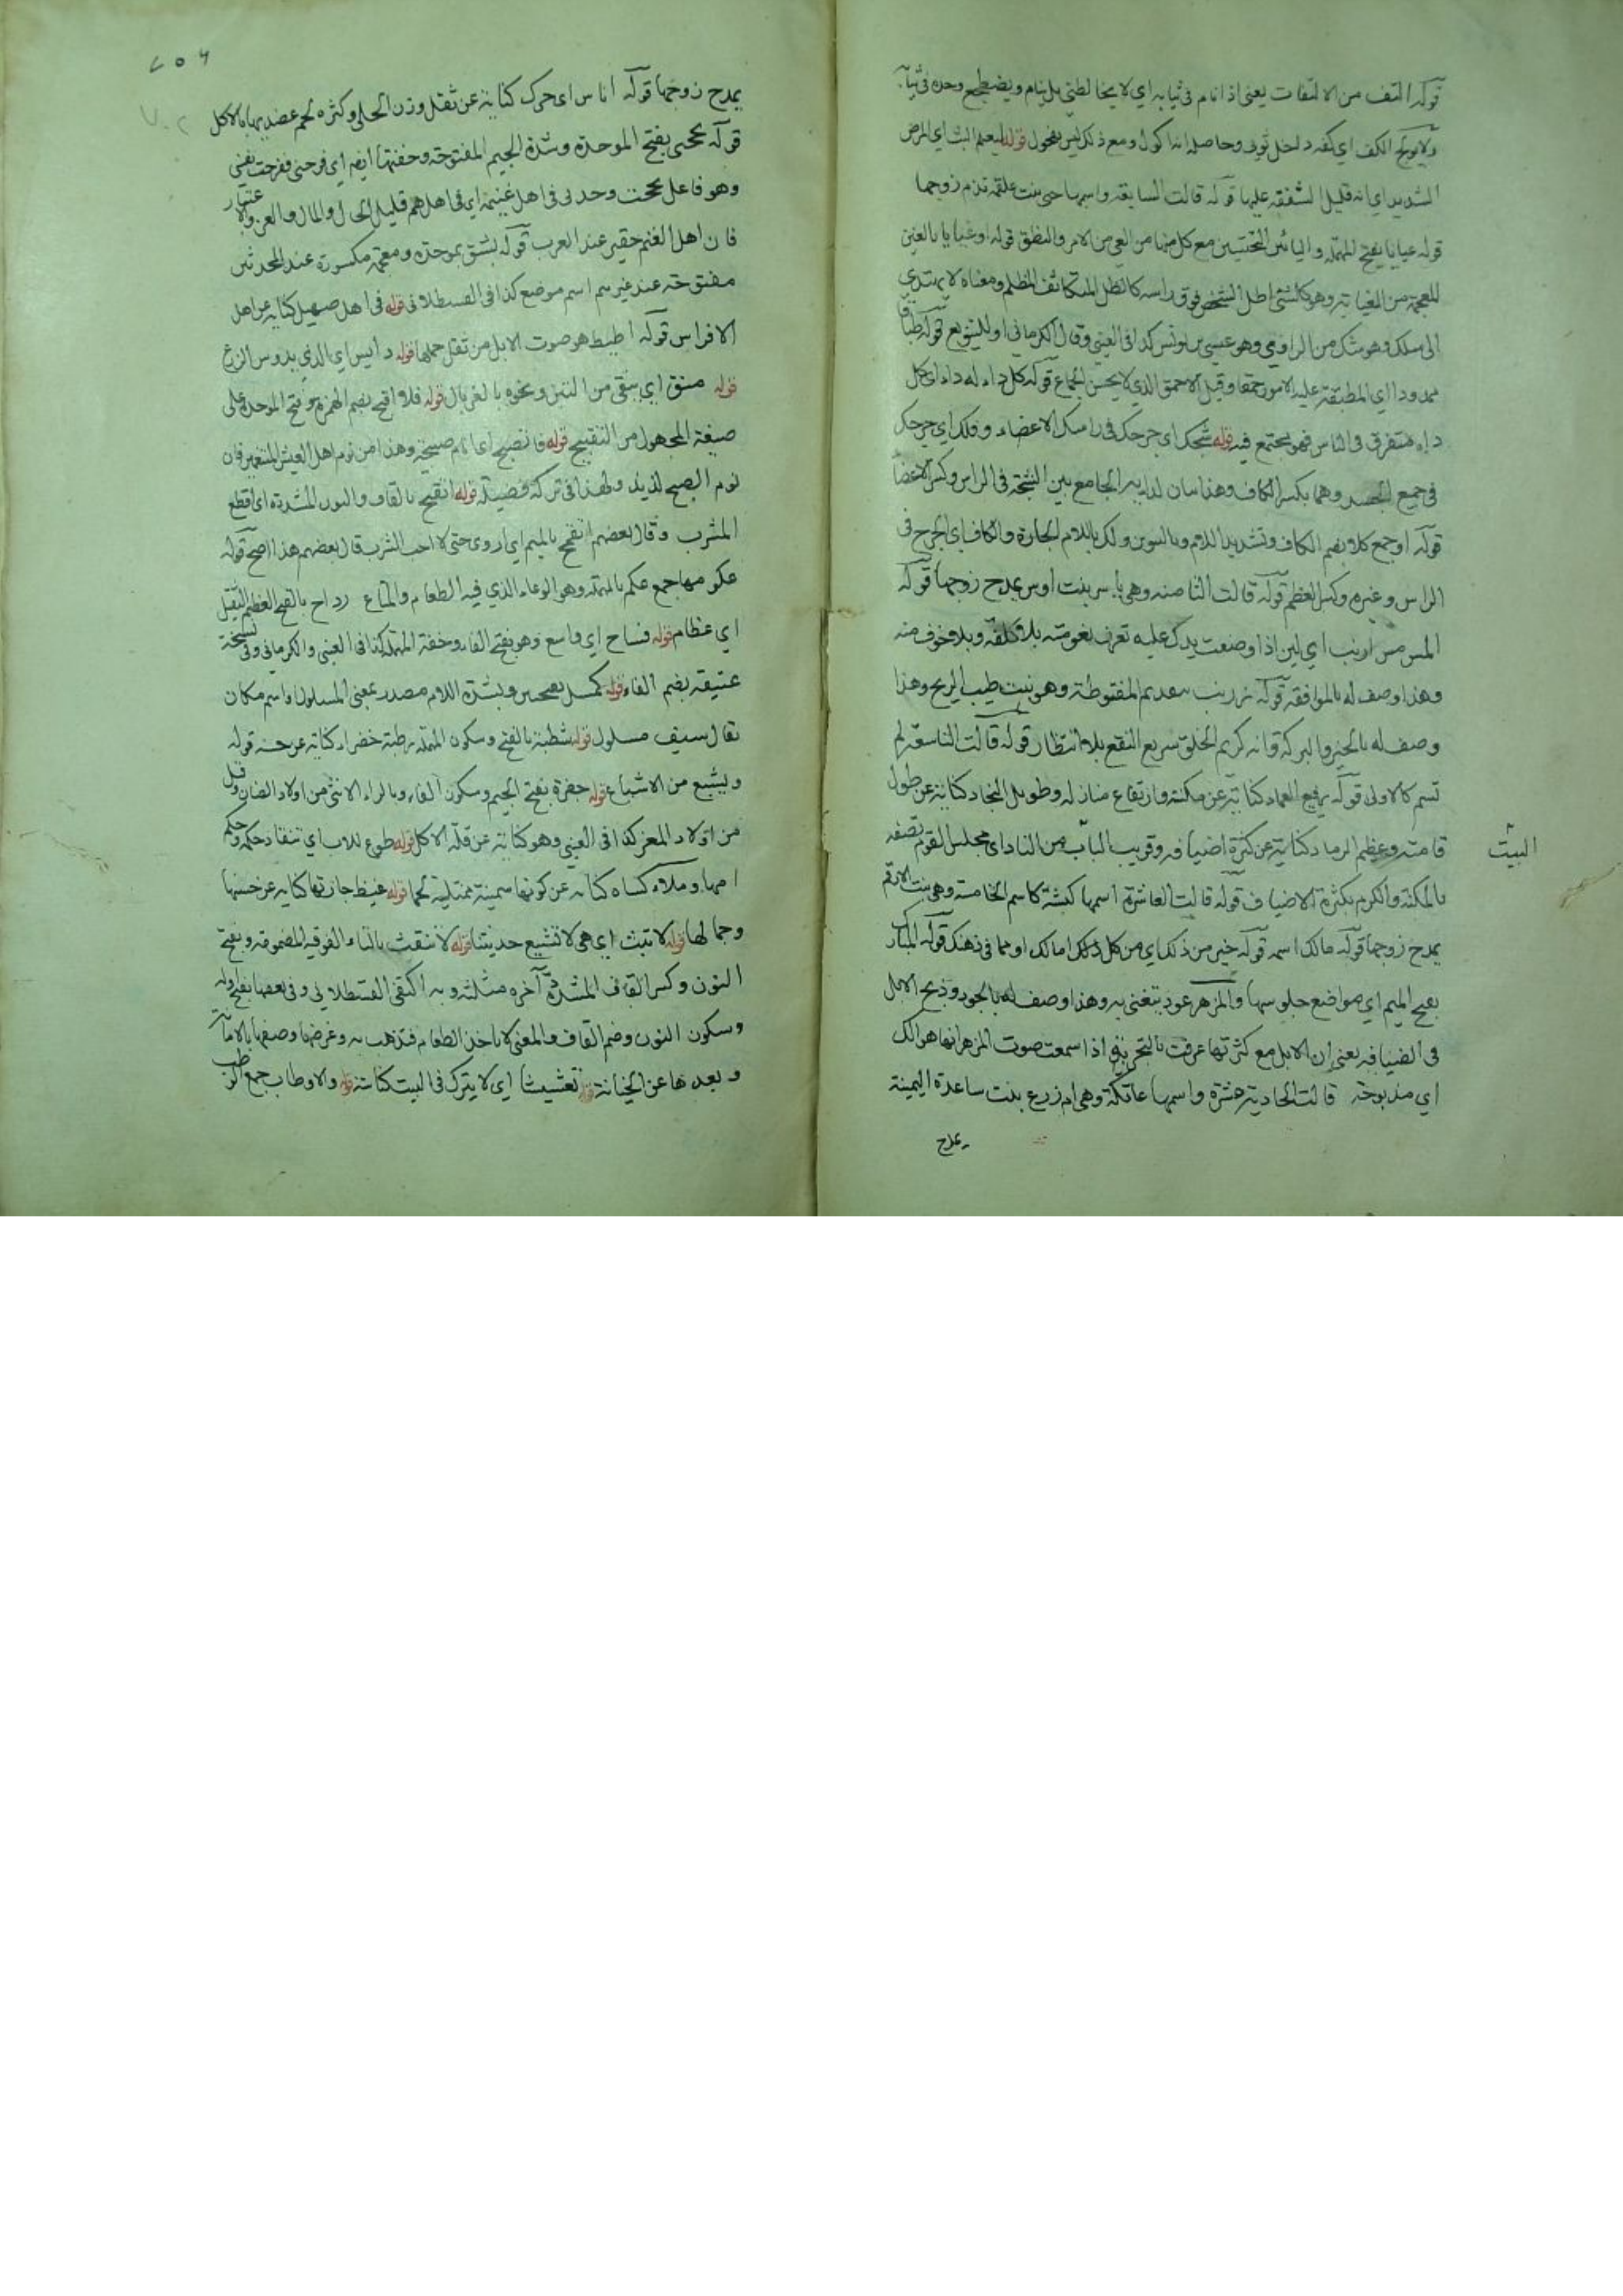 قوله التف من الالتفات يعني اذا نام في ثيابه اي لا يخالطني بل ينام ويضطجع وحده في ثيابه
ولا يولج الكف اي كفه داخل ثوبي وحاصله انه اكول ومع ذلك ليس بفحول قوله ليعلم البث اي المرض
الشديد اي انه قليل الشفقة عليها قوله قالت السابعة واسمها حبى بنت علقمة تذم زوجها
قوله عياياء بفتح المهملة واليائين التحتيتين مع كل منهما من العي من الامر والنطق قوله او غياياء بالغين
المعجمة من الغياية وهو كالشئ اظل الشخص فوق راسه كالظل المتكاثف المظلم ومعناه لا يهتدي
الى مسلك وهو شك من الراوي وهو عيسى بن يونس كذا في العيني وقال الكرماني او للتنويع قوله طباقاء
ممدودا اي المطبقة عليه الامور حمقا وقيل الاحمق الذي لا يحسن الجماع قوله كل داء له داء اي كل
داء متفرق في الناس فهو مجتمع فيه قوله شجك اي جرحك في راسك الاعضاء و فلك اي جرحك
في جميع الجسد وهما بكسر الكاف وهذا بيان لدايه الجامع بين الشجة في الراس وكسر الاعضا
قوله او جمع كلا بضم الكاف وتشديد اللام وبالتنوين ولك باللام الجارة والكاف اي الجرح في
الراس وغيره وكسر العظم قوله قالت الثامنة وهي ياسر بنت اوس تمدح زوجها قوله
المس مس ارنب اي لين اذا وضعت يدك عليه تعرف نعومته بلا كلفة وبلا خوف منه
وهذا وصف له بالموافقة قوله زرنب بتقديم المنقوطة وهو نبت طيب الريح وهذا
وصف له بالخير والبركة وانه كريم الخلق سريع النفع بلا انتظار قوله قالت التاسعة لم
تسم كالاولى قوله رفيع العماد كناية عن مكنته وارتفاع منازله وطويل النجاد كناية عن طول
قامته وعظيم الرماد كناية عن كثرة اضيافه وقريب البيت من الناد اي مجلس القوم تصفه
البيت
بالمكنة والكرم بكثرة الاضياف قوله قالت العاشرة اسمها كبشة كاسم الخامسة وهي بنت الارقم
تمدح زوجها قوله مالك اسمه قوله خير من ذلك اي من كل ذلك امالك او مما في ذهنك قوله المبارك
بفتح الميم اي مواضع جلوسها والمزهر عود يتغنى به وهذا وصف له بالجود وذبح الابل
في الضيافة يعني ان الابل مع كثرتها عرفت بالتجربة اذا سمعت صوت المزهر انها هوالك
اي مذبوحة قالت الحادية عشرة واسمها عاتكة وهي ام زرع بنت ساعدة اليمنية
تمدح
٧٠٢
تمدح زوجها قوله اناس اي حرك كناية عن ثقل وزن الحلي وكثرة لحم عضديها بالاكل
قوله بجحني بفتح الموحدة وشدة الجيم المفتوحة وخفتها ايضا اي فرحني ففرحت نفسي
وهو فاعل بجحت وحدني في اهل غنيمة اي في اهل هم قليل الحال والمال والعز والاعتبار
فان اهل الغنم حقير عند العرب قوله بشق بموحدة ومعجمة مكسورة عند المحدثين
مفتوحة عند غيرهم اسم موضع كذا في القسطلاني قوله في اهل صهيل كناية عن اهل
الافراس قوله اطيط هو صوت الابل من ثقل حملها قوله دايس اي الذي يدوس الزرع
قوله منق اي ينقي من التبن ونحوه بالغربال قوله فلا اقبح بضم الهمزة وفتح الموحدة على
صيغة المجهول من التقبيح قوله فاتصبح اي انام صبيحة وهذا من نوم اهل العيش المتنعمين فان
نوم الصبح لذيذ ولهذا في تركه فضيلة قوله اتقنح بالقاف والنون المشددة اي اقطع
المشرب وقال بعضهم اتقمح بالميم اي اروى حتى لا احب الشرب قال بعضهم هذا اصح قوله
عكومها جمع عكم بالمهملة وهو الوعاء الذي فيه الطعام والمتاع رداح بالفتح العظيم الثقيل
اي عظام قوله فساح اي واسع وهو بفتح الفاء وخفة المهملة كذا في العيني والكرماني وفي نسخة
عتيقة بضم الفاء قوله كمسل بفتحتين وبشدة اللام مصدر بمعنى المسلول او اسم مكان
يقال سيف مسلول قوله شطبة بالفتح وسكون المهملة رطبة خضراء كناية عن حسنه قوله
ويشبع من الاشباع قوله جفرة بفتح الجيم وسكون الفاء وبالراء الانثى من اولاد الضان وقيل
من اولاد المعز كذا في العيني وهو كناية عن قلة الاكل قوله طوع للاب اي تنقاد حكمه وحكم
امها وملاء كساه كناية عن كونها سمينة ممتلية لحما قوله غيظ جارتها كناية عن حسنها
وجمالها قوله لا تبث اي هي لا تشيع حديثنا قوله لا تنقث بالتاء الفوقية المضمومة وبفتح
النون وكسر القاف المشددة آخره مثلثة وبه اكتفى القسطلاني وفي بعضها بفتح اوله
وسكون النون وضم القاف والمعنى لا تاخذ الطعام فتذهب به وغرضها وصفها بالامانة
وبعدها عن الخيانة قوله تعشيشا اي لا يترك في البيت كناسة قوله والاوطاب جمع الوطب